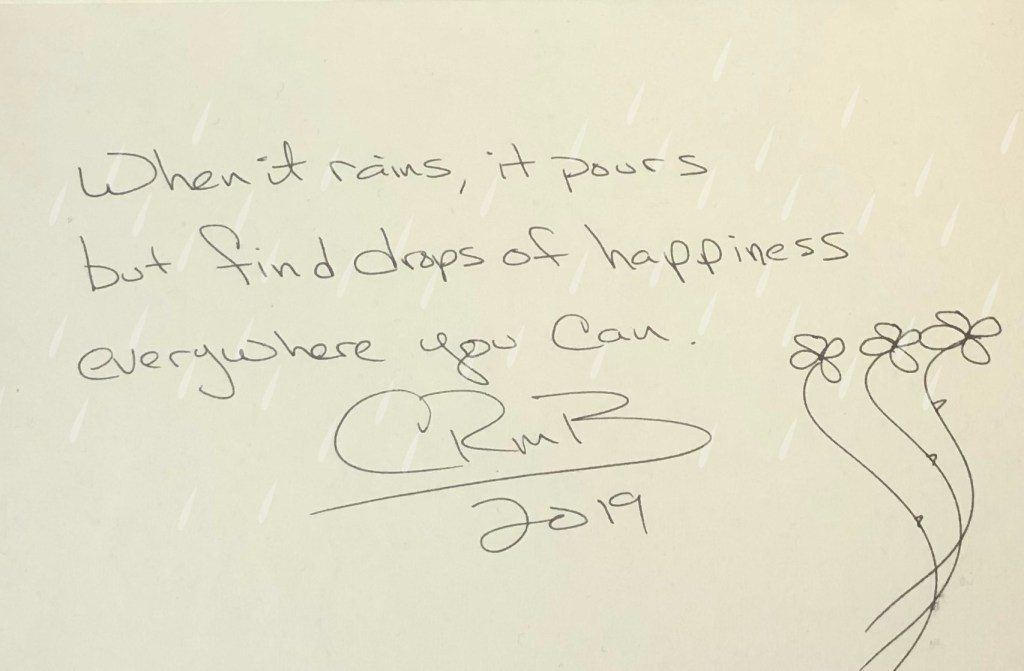 When it rains, it pours
but find drops of happiness
everywhere you can.
CRmB
2019